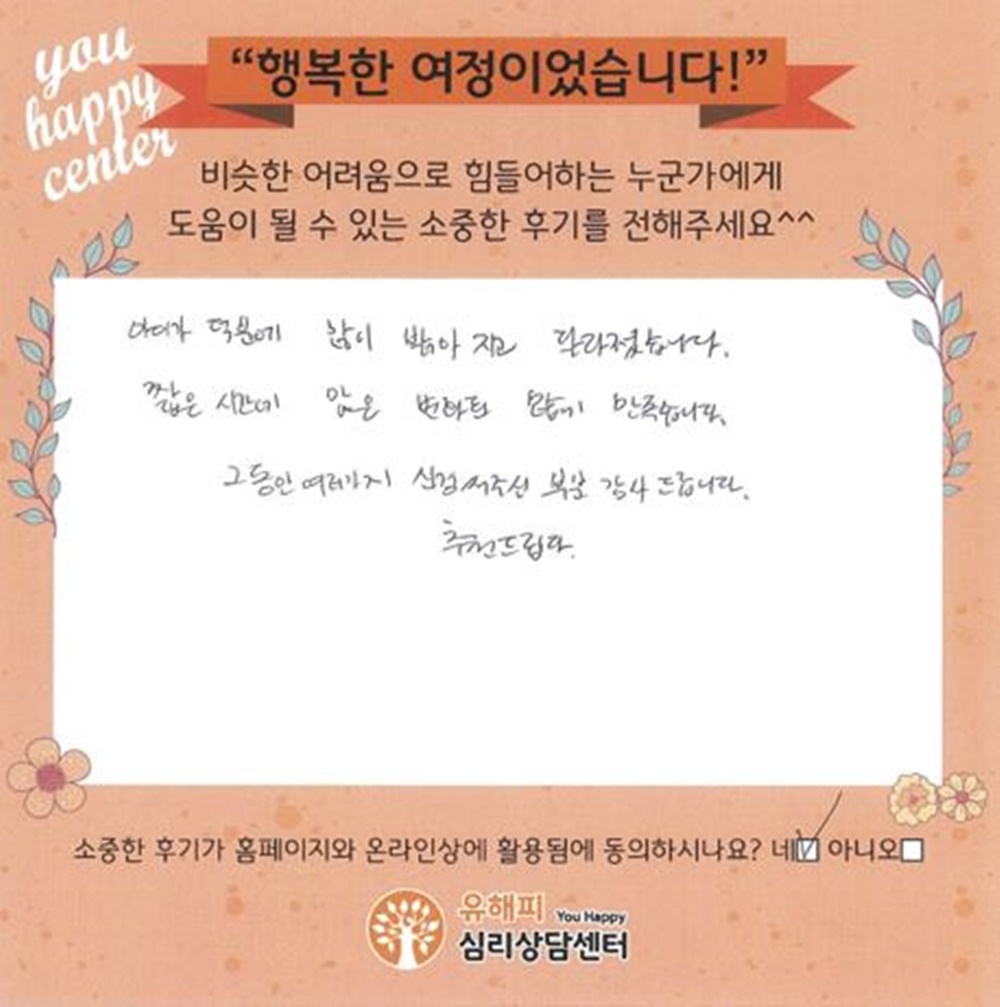 you
happy
center
“행복한 여정이었습니다!”
비슷한 어려움으로 힘들어하는 누군가에게
도움이 될 수 있는 소중한 후기를 전해주세요^^
덕분에 많이 밝아 지고 달라졌습니다.
짧은 시간에 많은 변화된 모습에 만족습니다.
그동안 여러가지 신경써주신 부분 감사드립니다.
추천드립다.
소중한 후기가 홈페이지와 온라인상에 활용됨에 동의하시나요? 네 아니오
유해피 You Happy
심리상담센터